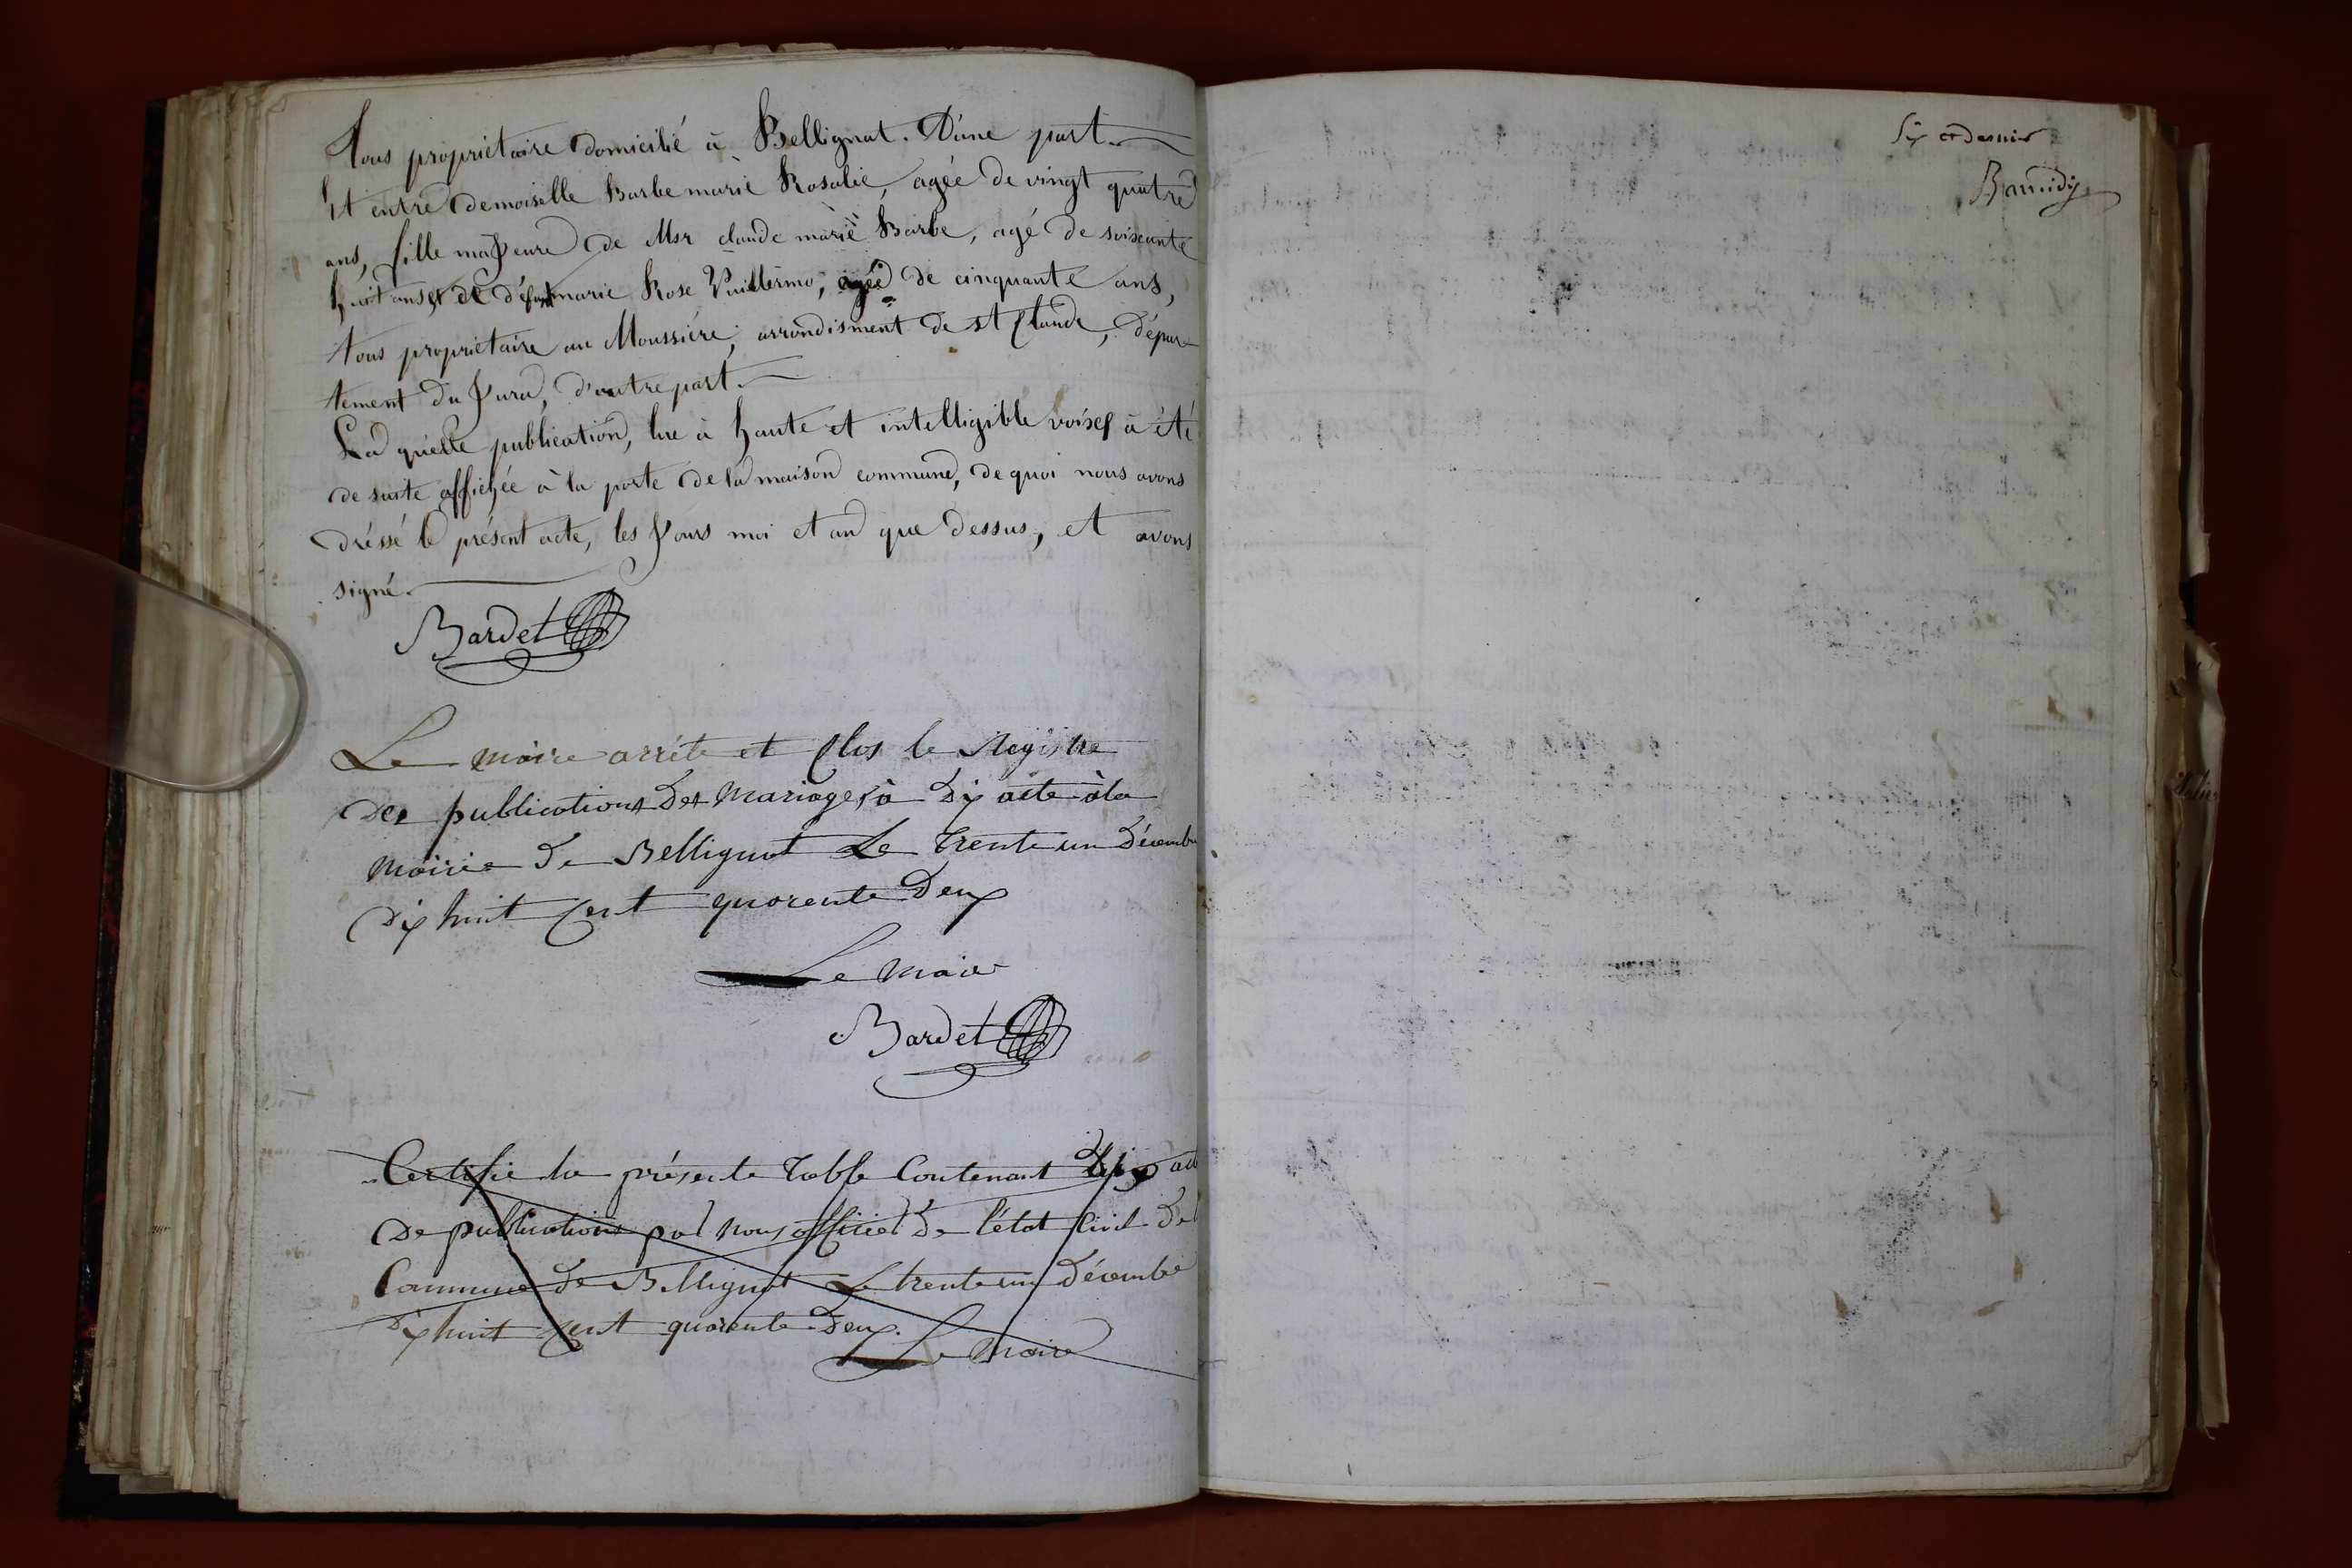 tous propriétaire domicilié à Bellignat. D'une part.
Et entre demoiselle Barbe marie Rosalie, agée de vingt quatre
ans, fille majeure de Msr claude marie Barbe, agé de soixante
huit ans et de défunt marie Rose Vuillermo, agée de cinquante ans,
tous propriétaire au Moussière, arrondisment de st Claude, dépar-
tement du Jura, d'autre part.
La quelle publication, lue à haute et intelligible voise, à été
de suite affichée à la porte de la maison commune, de quoi nous avons
dréssé le présent acte, les Jours moi et an que dessus, et avons
signé.
Bardet
Le maire arrête et Clos le Registre
Des publications Des Mariages à Dix acte à la
Mairie de Bellignat Le trente un Décembre
Dix huit Cent quarente Deux
Le Maire
Bardet
Certifie la présente Table Contenant Dix act
De publications par nous officier de l'état Civil de
Commune de Bellignat Le trente un Décembre
Dix huit Cent quarente Deux.
Le Maire
Six et dernier